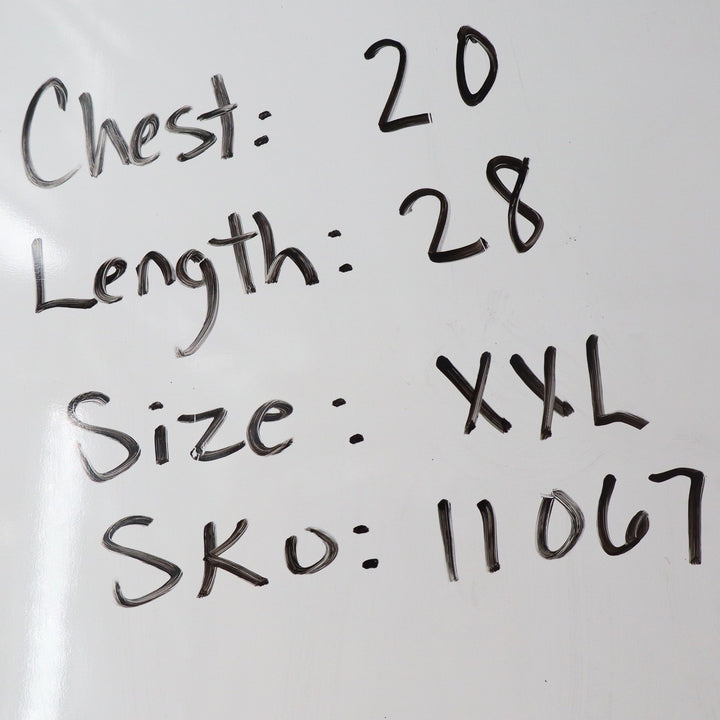 Chest: 20
Length: 28
Size: XXL
SKU: 11067